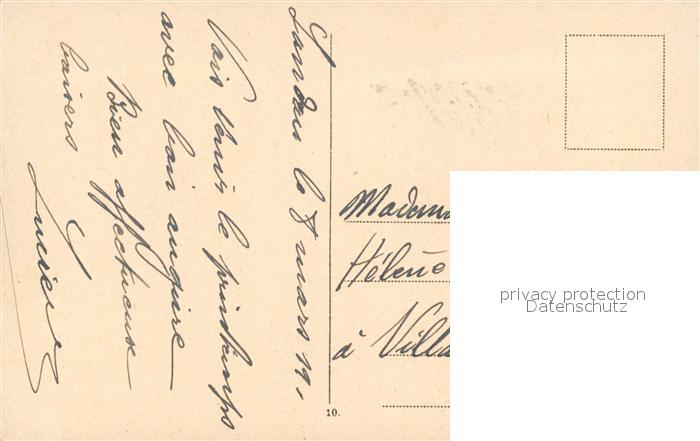 Landau le 8 mars 19.
Vois venir le printemps
avec bon augure
Bien affectueux
baisers
Lucien
Madem
Hélène
à Villa
10.
privacy protection
Datenschutz